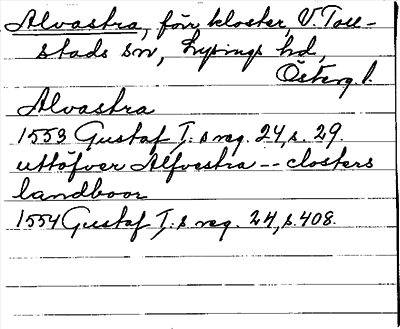 Alvastra, förr kloster, V. Toll-
stads sn, Lysings hd,
Österg. l.
Alvastra
1553 Gustaf I:s reg. 24, s. 29.
uttöfver Alfvestra -- closters
landboor
1554 Gustaf I:s reg. 24, s. 408.